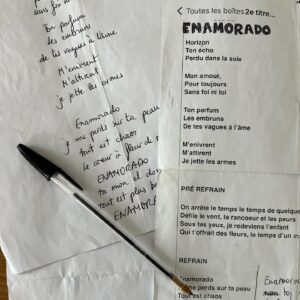 sans foi
Ton parfum
des embruns
de tes vagues à l'âme
M'enivrent
M'attirent
je jette les armes
Enamorado
je me perds sur ta peau
tout est chaos
le cœur à fleur de
ENAMORADO
toi mon el do
tout est plus be
ENAMORA
Toutes les boîtes 2e titre...
ENAMORADO
Horizon
Ton écho
Perdu dans la soie
Mon amour,
Pour toujours
Sans foi ni loi
Ton parfum
Les embruns
De tes vagues à l'âme
M'enivrent
M'attirent
Je jette les armes
PRÉ REFRAIN
On arrête le temps le temps de quelque
Défile le vent, la rancoeur et les peurs
Sous tes yeux, je redeviens l'enfant
Qui t'offrait des fleurs, le temps d'un ins
REFRAIN
Enamorado
me perds sur ta peau
Tout est chaos
Enamora
toi